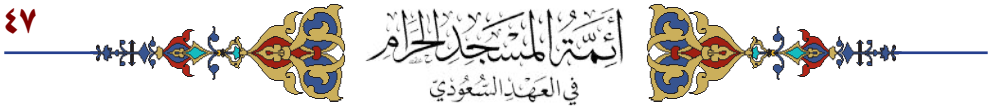 ٤٧
أَئِمَّةُ المَسْجِدِ الحَرَامِ
في العَهْدِ السُّعُودِيّ